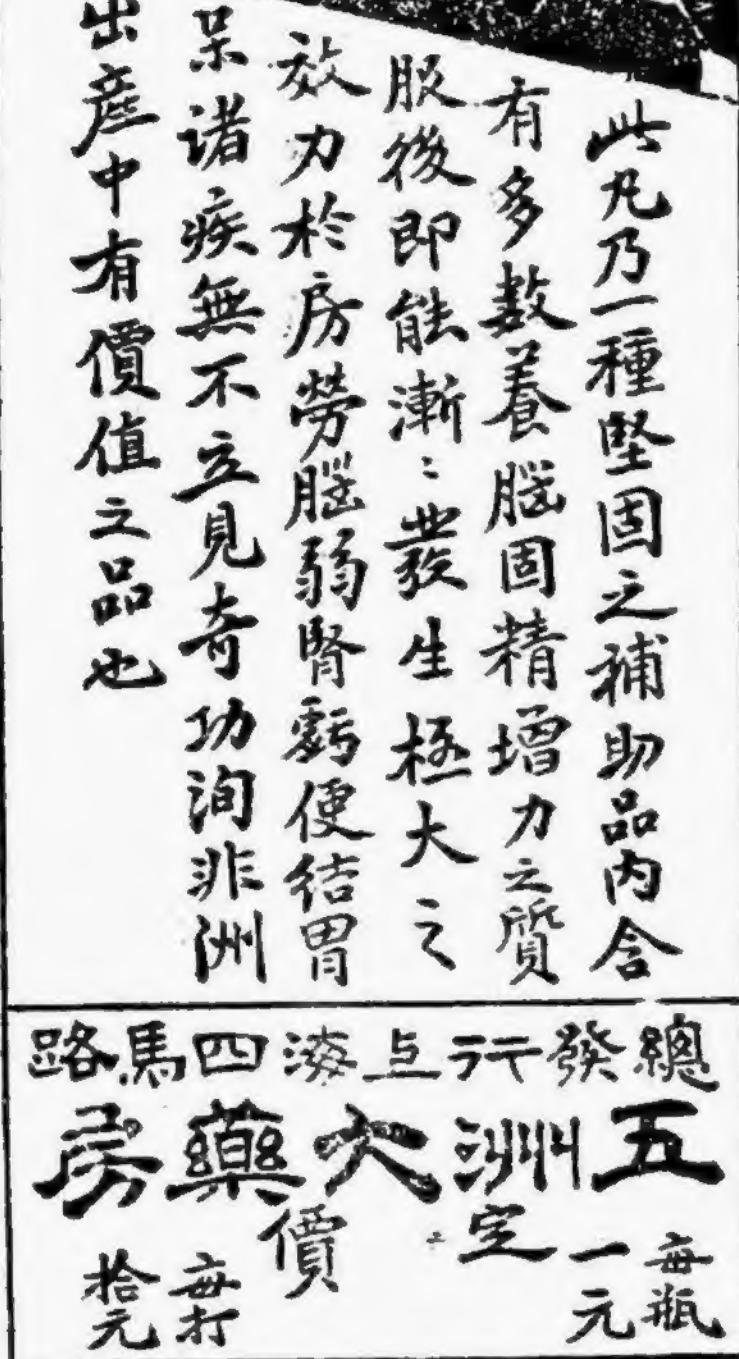 此丸乃一種堅固之補助品內含
有多數養腦固精增力之質
服後即能漸〻發生極大之
效力於房勞腦弱腎虧便結胃
呆諸疾無不立見奇功洵非洲
出產中有價值之品也
總發行上海四馬路
五洲大藥房
定價
每瓶一元
每打拾元